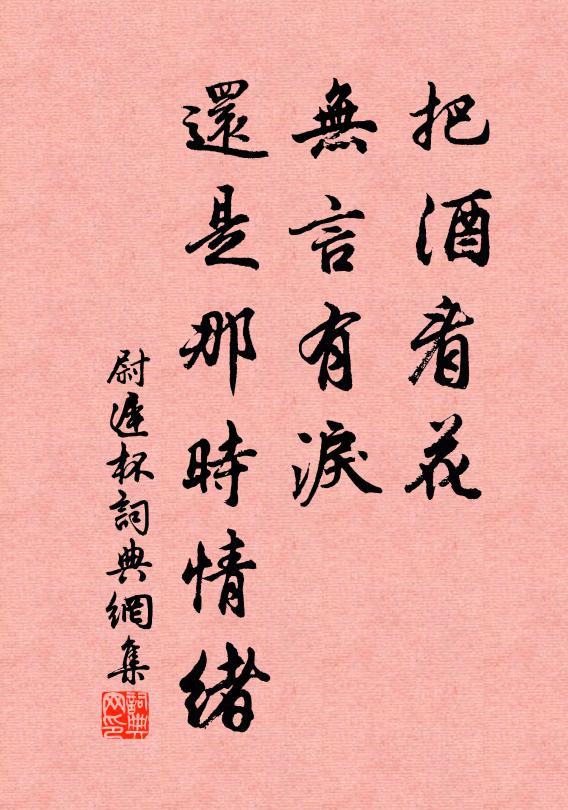 把酒看花
無言有淚
還是那時情緒
尉遲杯詞典網集
詞典
网印